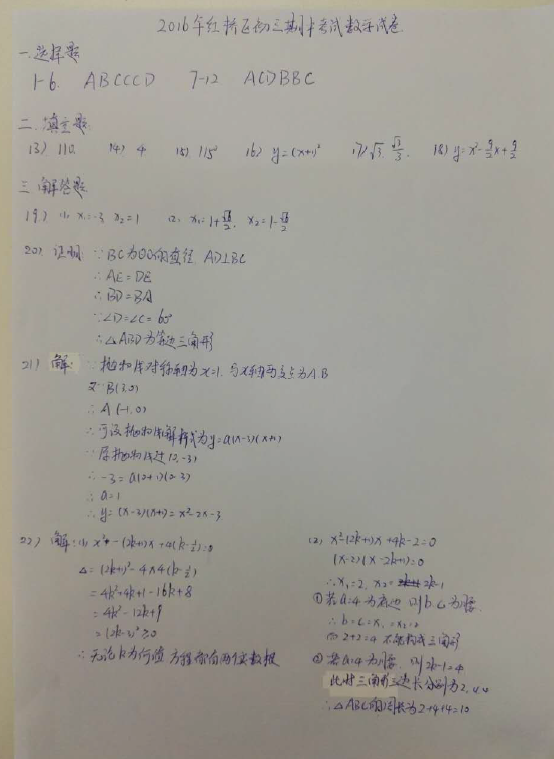 2016年红桥区初三期中考试数学试卷
一.选择题
1-6. ABCCCD 7-12 ACDBBC
二.填空题
13) 110. 14) 4 15) 115° 16) y=(x+1)² 17) √3. √3/3. 18)
三.解答题
19) (1) x₁=-3, x₂=1 (2)
20) 证明 ∵BC为⊙O的直径, AD⊥BC
∴AE=DE
∴BD=BA
∵∠D=∠C=60°
∴△ABD为等边三角形
21) 解: ∵抛物线对称轴为x=1, 与x轴两交点为A.B
又∵B(3,0)
∴A(-1,0)
∴可设抛物线解析式为y=a(x-3)(x+1)
∵抛物线过
∴a=1
∴y=(x-3)(x+1)=x²-2x-3
22) 解:(1)
=4k²+4k+1-16k+8
=4k²-12k+9
=(2k-3)²≥0
∴无论k为何值, 方程总有两个实数根
(2) x²-(2k+1)x+4k-2=0
(x-2)(x-2k+1)=0
∴x₁=2, x₂=2k-1
①若a=4为底边, 则b,c为腰.
∴b=c=x₁=x₂=2
2+2=4 不能构成三角形
②若a=4为腰, 则2k-1=4
此时三角形三边长分别为2,4,4
∴△ABC的周长为2+4+4=10